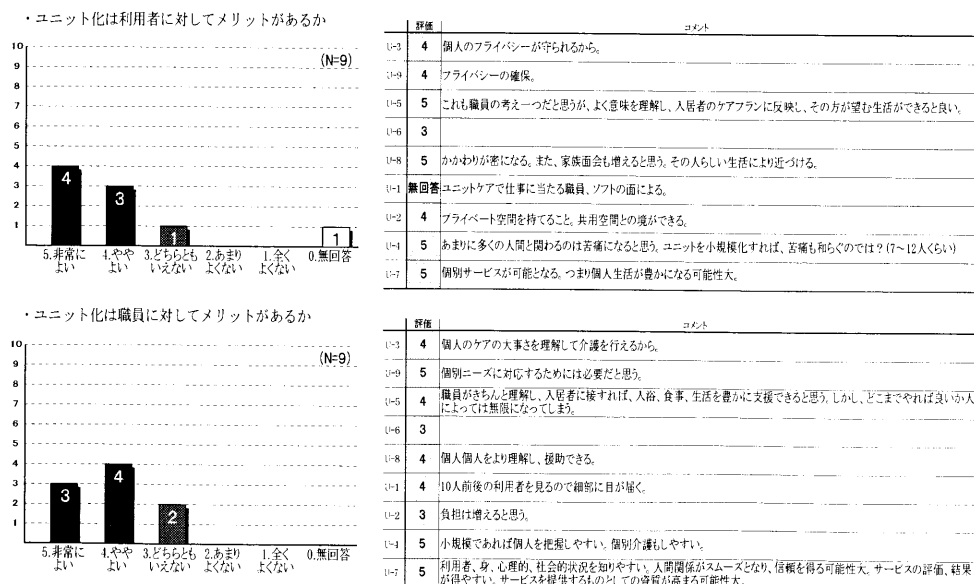 ・ユニット化は利用者に対してメリットがあるか
10
9
8
7
6
5
4
3
2
1
(N=9)
4
3
1
1
5.非常に よい
4.やや よい
3.どちらとも いえない
2.あまり よくない
1.全く よくない
0.無回答
評価 コメント
U-3 4 個人のプライバシーが守られるから。
U-9 4 プライバシーの確保。
U-5 5 これも職員の考え一つだと思うが、よく意味を理解し、入居者のケアプランに反映し、その方が望む生活ができると良い。
U-6 3
U-8 5 かかわりが密になる。また、家族面会も増えると思う。その人らしい生活により近づける。
U-1 無回答 ユニットケアで仕事に当たる職員、ソフトの面による。
U-2 4 プライベート空間を持てること。共用空間との境ができる。
U-4 5 あまりに多くの人間と関わるのは苦痛になると思う。ユニットを小規模化すれば、苦痛も和らぐのでは？(7～12人くらい)
U-7 5 個別サービスが可能となる。つまり個人生活が豊かになる可能性大。
・ユニット化は職員に対してメリットがあるか
10
9
8
7
6
5
4
3
2
1
(N=9)
3
4
2
5.非常に よい
4.やや よい
3.どちらとも いえない
2.あまり よくない
1.全く よくない
0.無回答
評価 コメント
U-3 4 個人のケアの大事さを理解して介護を行えるから。
U-9 5 個別ニーズに対応するためには必要だと思う。
U-5 4 職員がきちんと理解し、入居者に接すれば、入浴、食事、生活を豊かに支援できると思う。しかし、どこまでやれば良いか人
によっては無限になってしまう。
U-6 3
U-8 4 個人個人をより理解し、援助できる。
U-1 4 10人前後の利用者を見るので細部に目が届く。
U-2 3 負担は増えると思う。
U-4 5 小規模であれば個人を把握しやすい。個別介護もしやすい。
U-7 5 利用者、身、心理的、社会的状況を知りやすい。人間関係がスムーズとなり、信頼を得る可能性大。サービスの評価、結果
が得やすい。サービスを提供するものとしての資質が高まる可能性大。